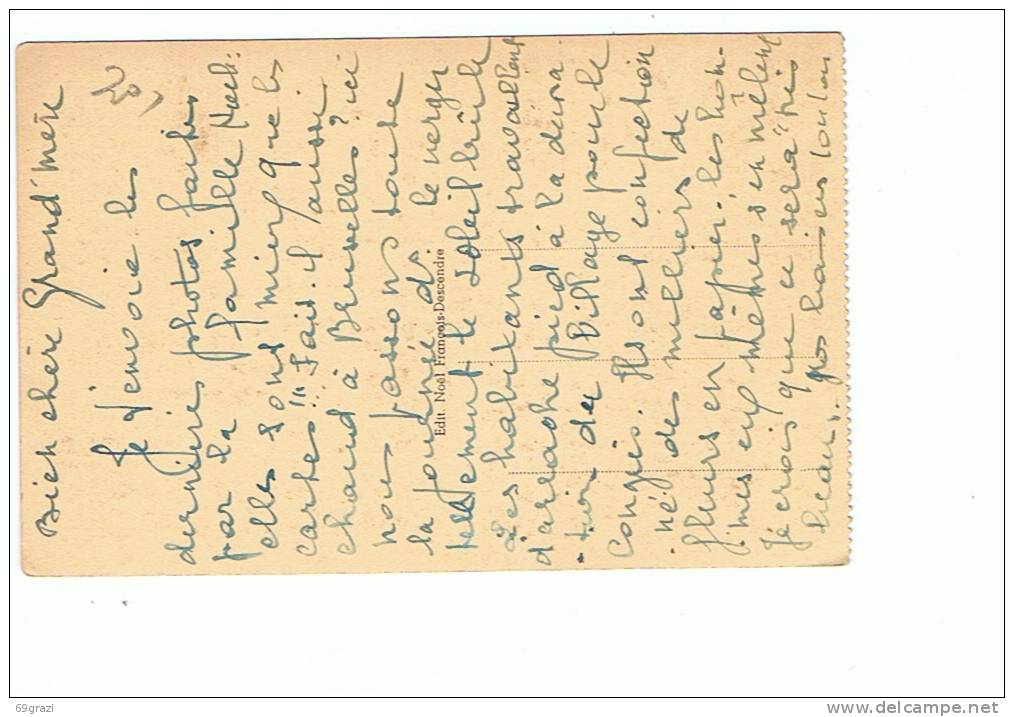 Bien chère Grand'mère
20,
Je t'envoie les
dernière photos faites
par la famille
elles sont mieux que les
cartes !!! Fait-il aussi
chaud à Bruxelles? ici
nous passons toute
la journée ds le verger
tellement le soleil brûle
Les habitants travaillent
d'arrache pied à la décora
tion du Village pour le
Congrès. Ils ont confection
né des milliers de
fleurs en papier. les hom-
mes eux mêmes s'en mêlent
Je crois que ce sera très
beau. gros baisers
Edit. Noël François-Descendre
69grazi
delcampe.net